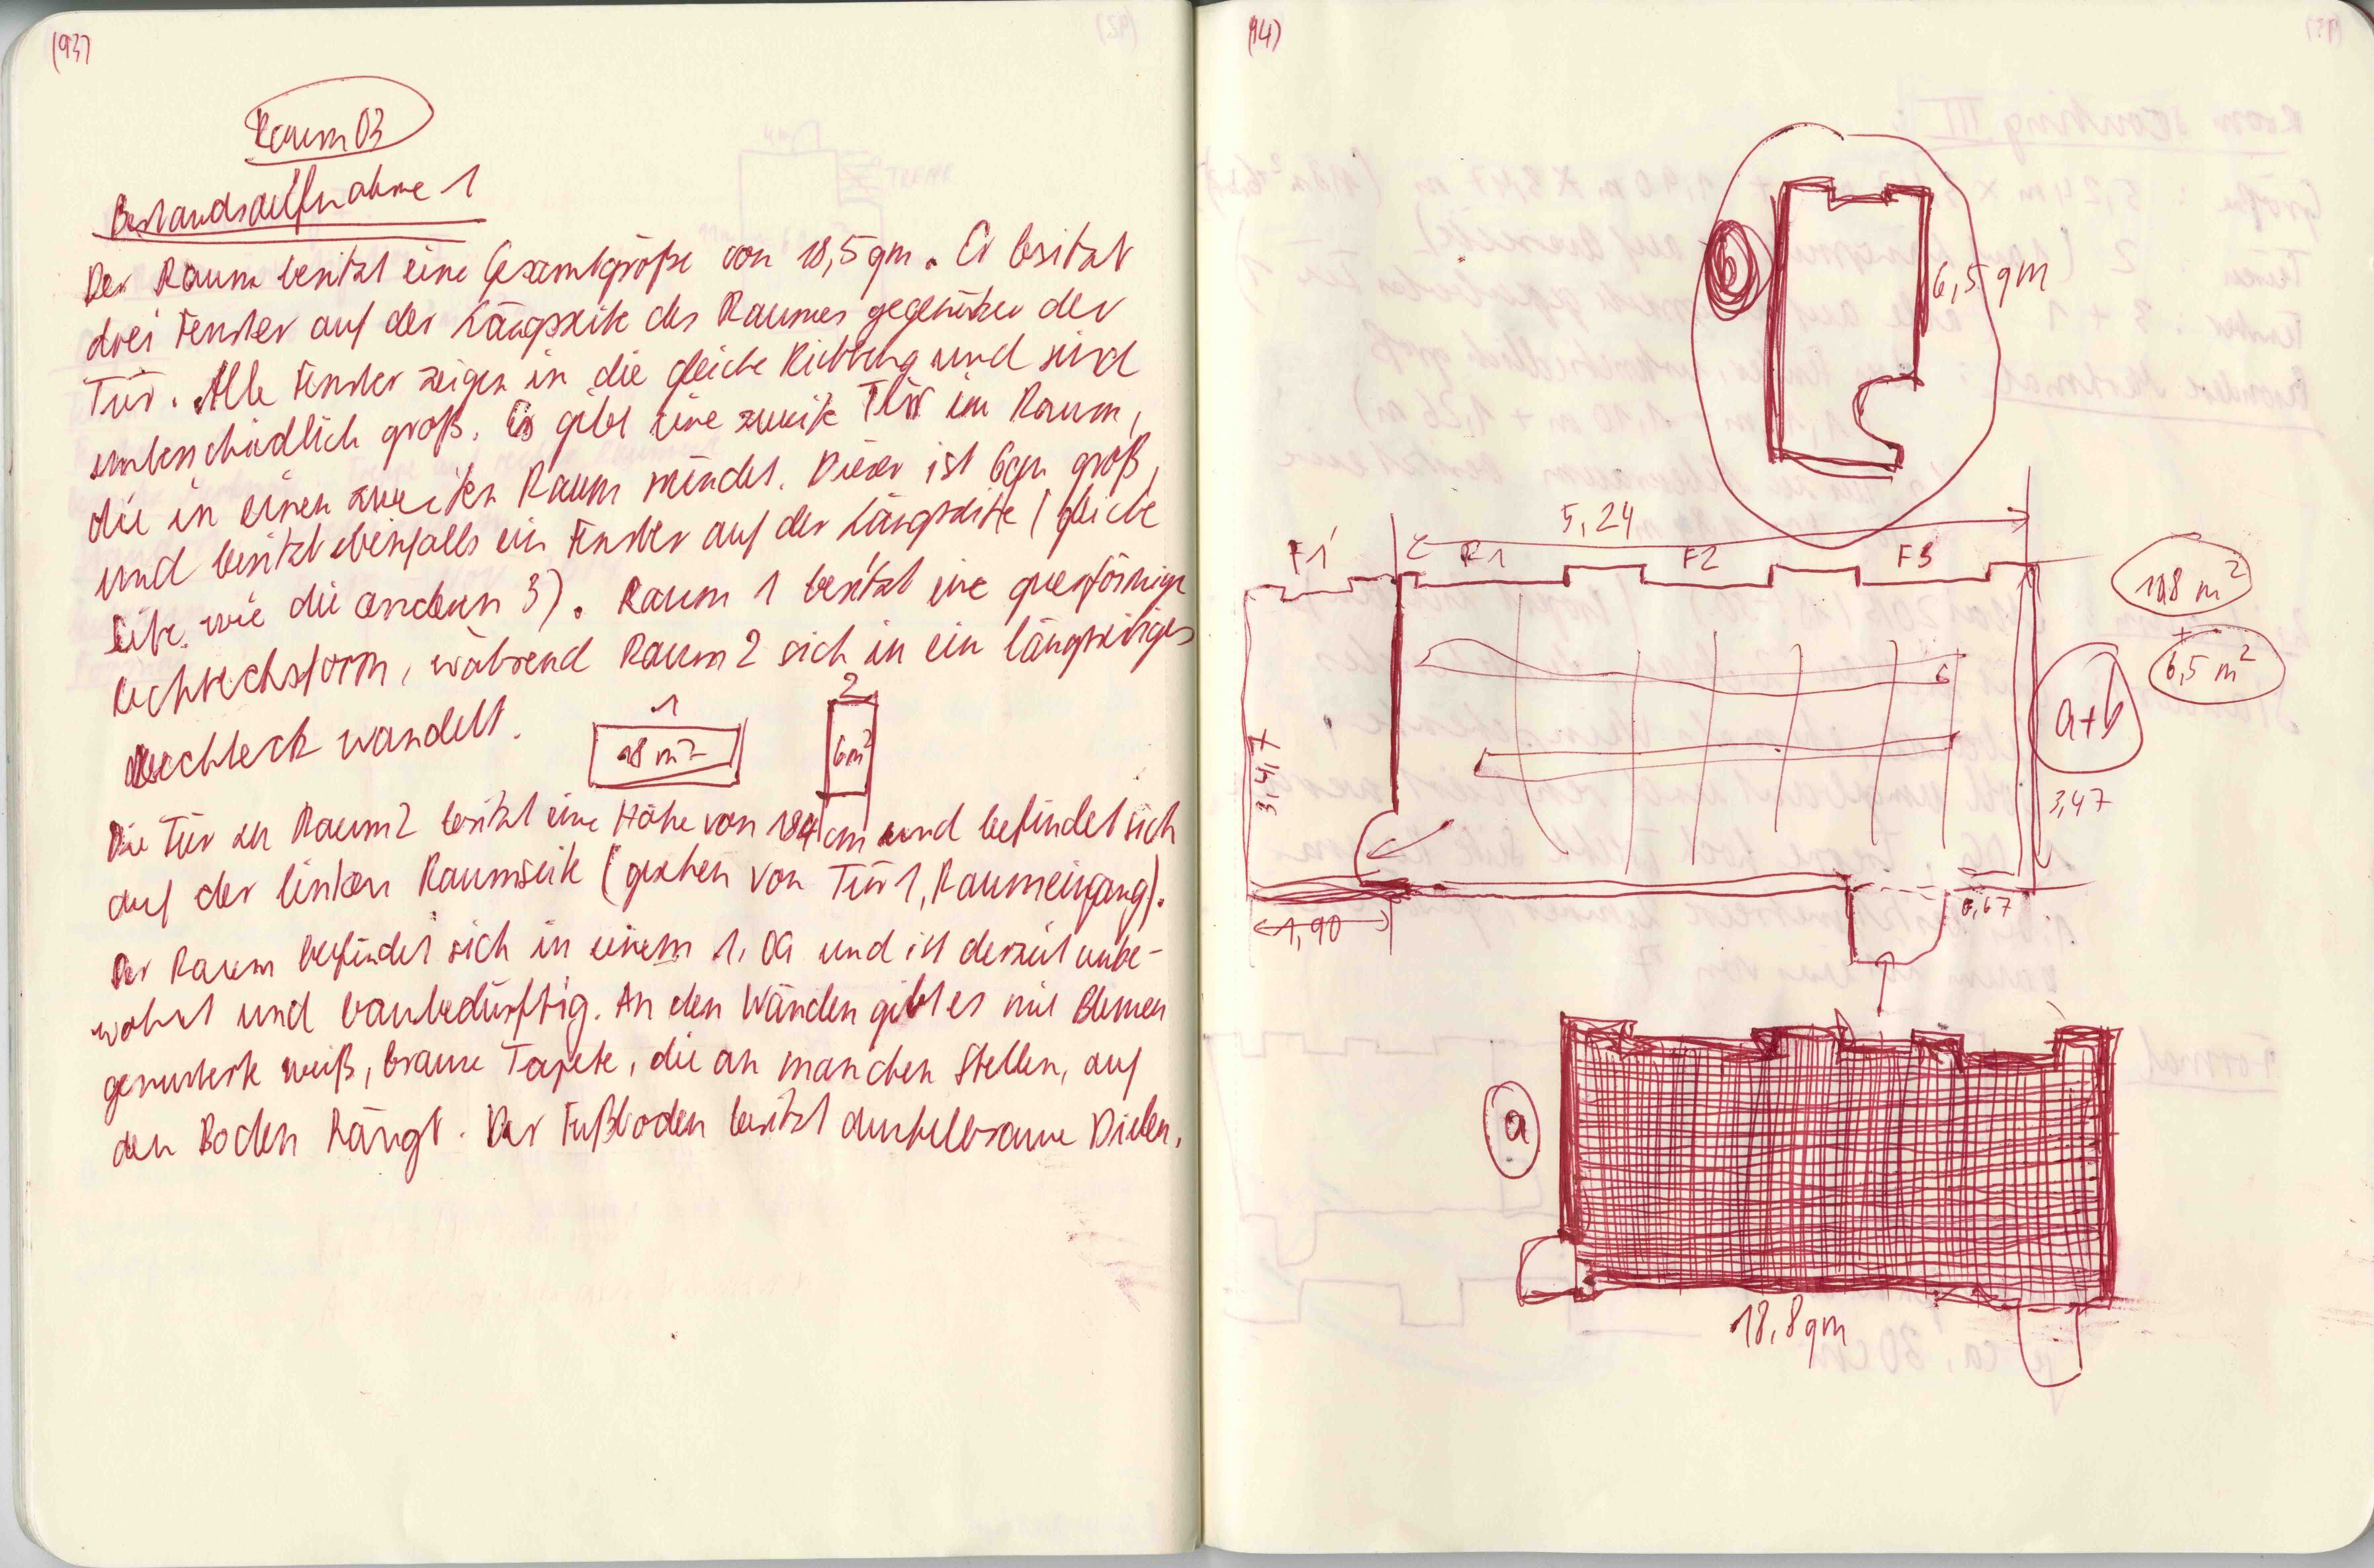 (93)
Raum 03
Bestandsaufnahme 1
Der Raum besitzt eine Gesamtgröße von 18,5 qm. Er besitzt
drei Fenster auf der Längsseite des Raumes gegenüber der
Tür. Alle Fenster zeigen in die gleiche Richtung und sind
unterschiedlich groß. Es gibt eine zweite Tür im Raum,
die in einen zweiten Raum mündet. Dieser ist 6qm groß,
und besitzt ebenfalls ein Fenster auf der Längsseite (gleiche
Seite wie die andern 3). Raum 1 besitzt eine querförmige
rechtecksform, während Raum 2 sich in ein längsseitiges
rechteck wandelt.
1
18 m²
2
6m²
Die Tür zu Raum 2 besitzt eine Höhe von 184 cm und befindet sich
auf der linken Raumseite (gesehen von Tür 1, Raumeingang).
Der Raum befindet sich in einem 1. OG und ist derzeit unbe-
wohnt und baubedürftig. An den Wänden gibt es mit Blumen
gemusterte weiß, braune Tapete, die an manchen Stellen, auf
den Boden hängt. Der Fußboden besitzt dunkelbraune Dielen.
(94)
b
6,5 qm
5,24
F1
F1
F2
F3
18,8 m²
+
6,5 m²
a+b
3,47
3,47
1,90
0,67
a
18,8qm